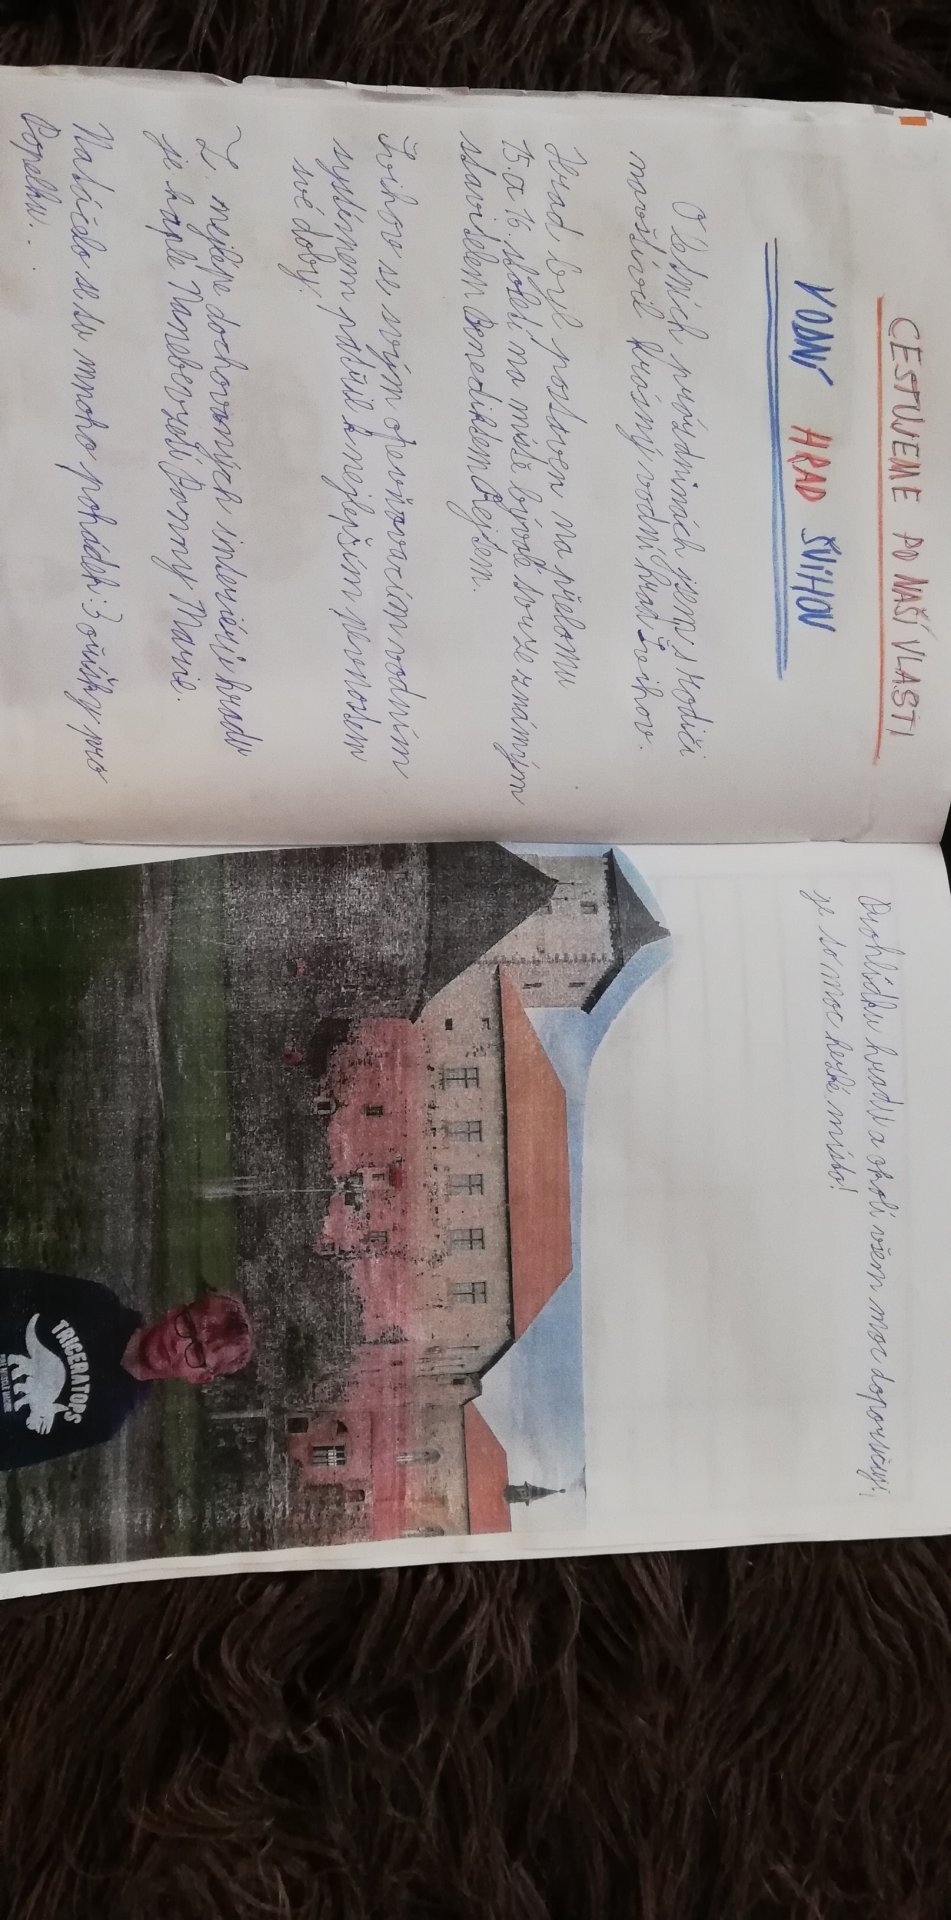 CESTUJEME PO NAŠÍ VLASTI
VODNÍ HRAD ŠVIHOV
O letních prázdninách jsem s rodiči
navštívil krásný vodní hrad Švihov.
Hrad byl postaven na přelomu
15. a 16. století na místě bývalé tvrze známým
stavitelem Benediktem Rejtem.
Švihov se svým opevňovacím vodním
systémem patřil k nejlepším pevnostem
své doby.
Z nejlépe dochovaných interiérů hradu
je kaple Nanebevzetí Panny Marie.
Natáčelo se tu mnoho pohádek: 3 oříšky pro
Popelku...
Prohlídku hradu a okolí všem moc doporučuji,
je to moc hezké místo!
TRICERATOPS